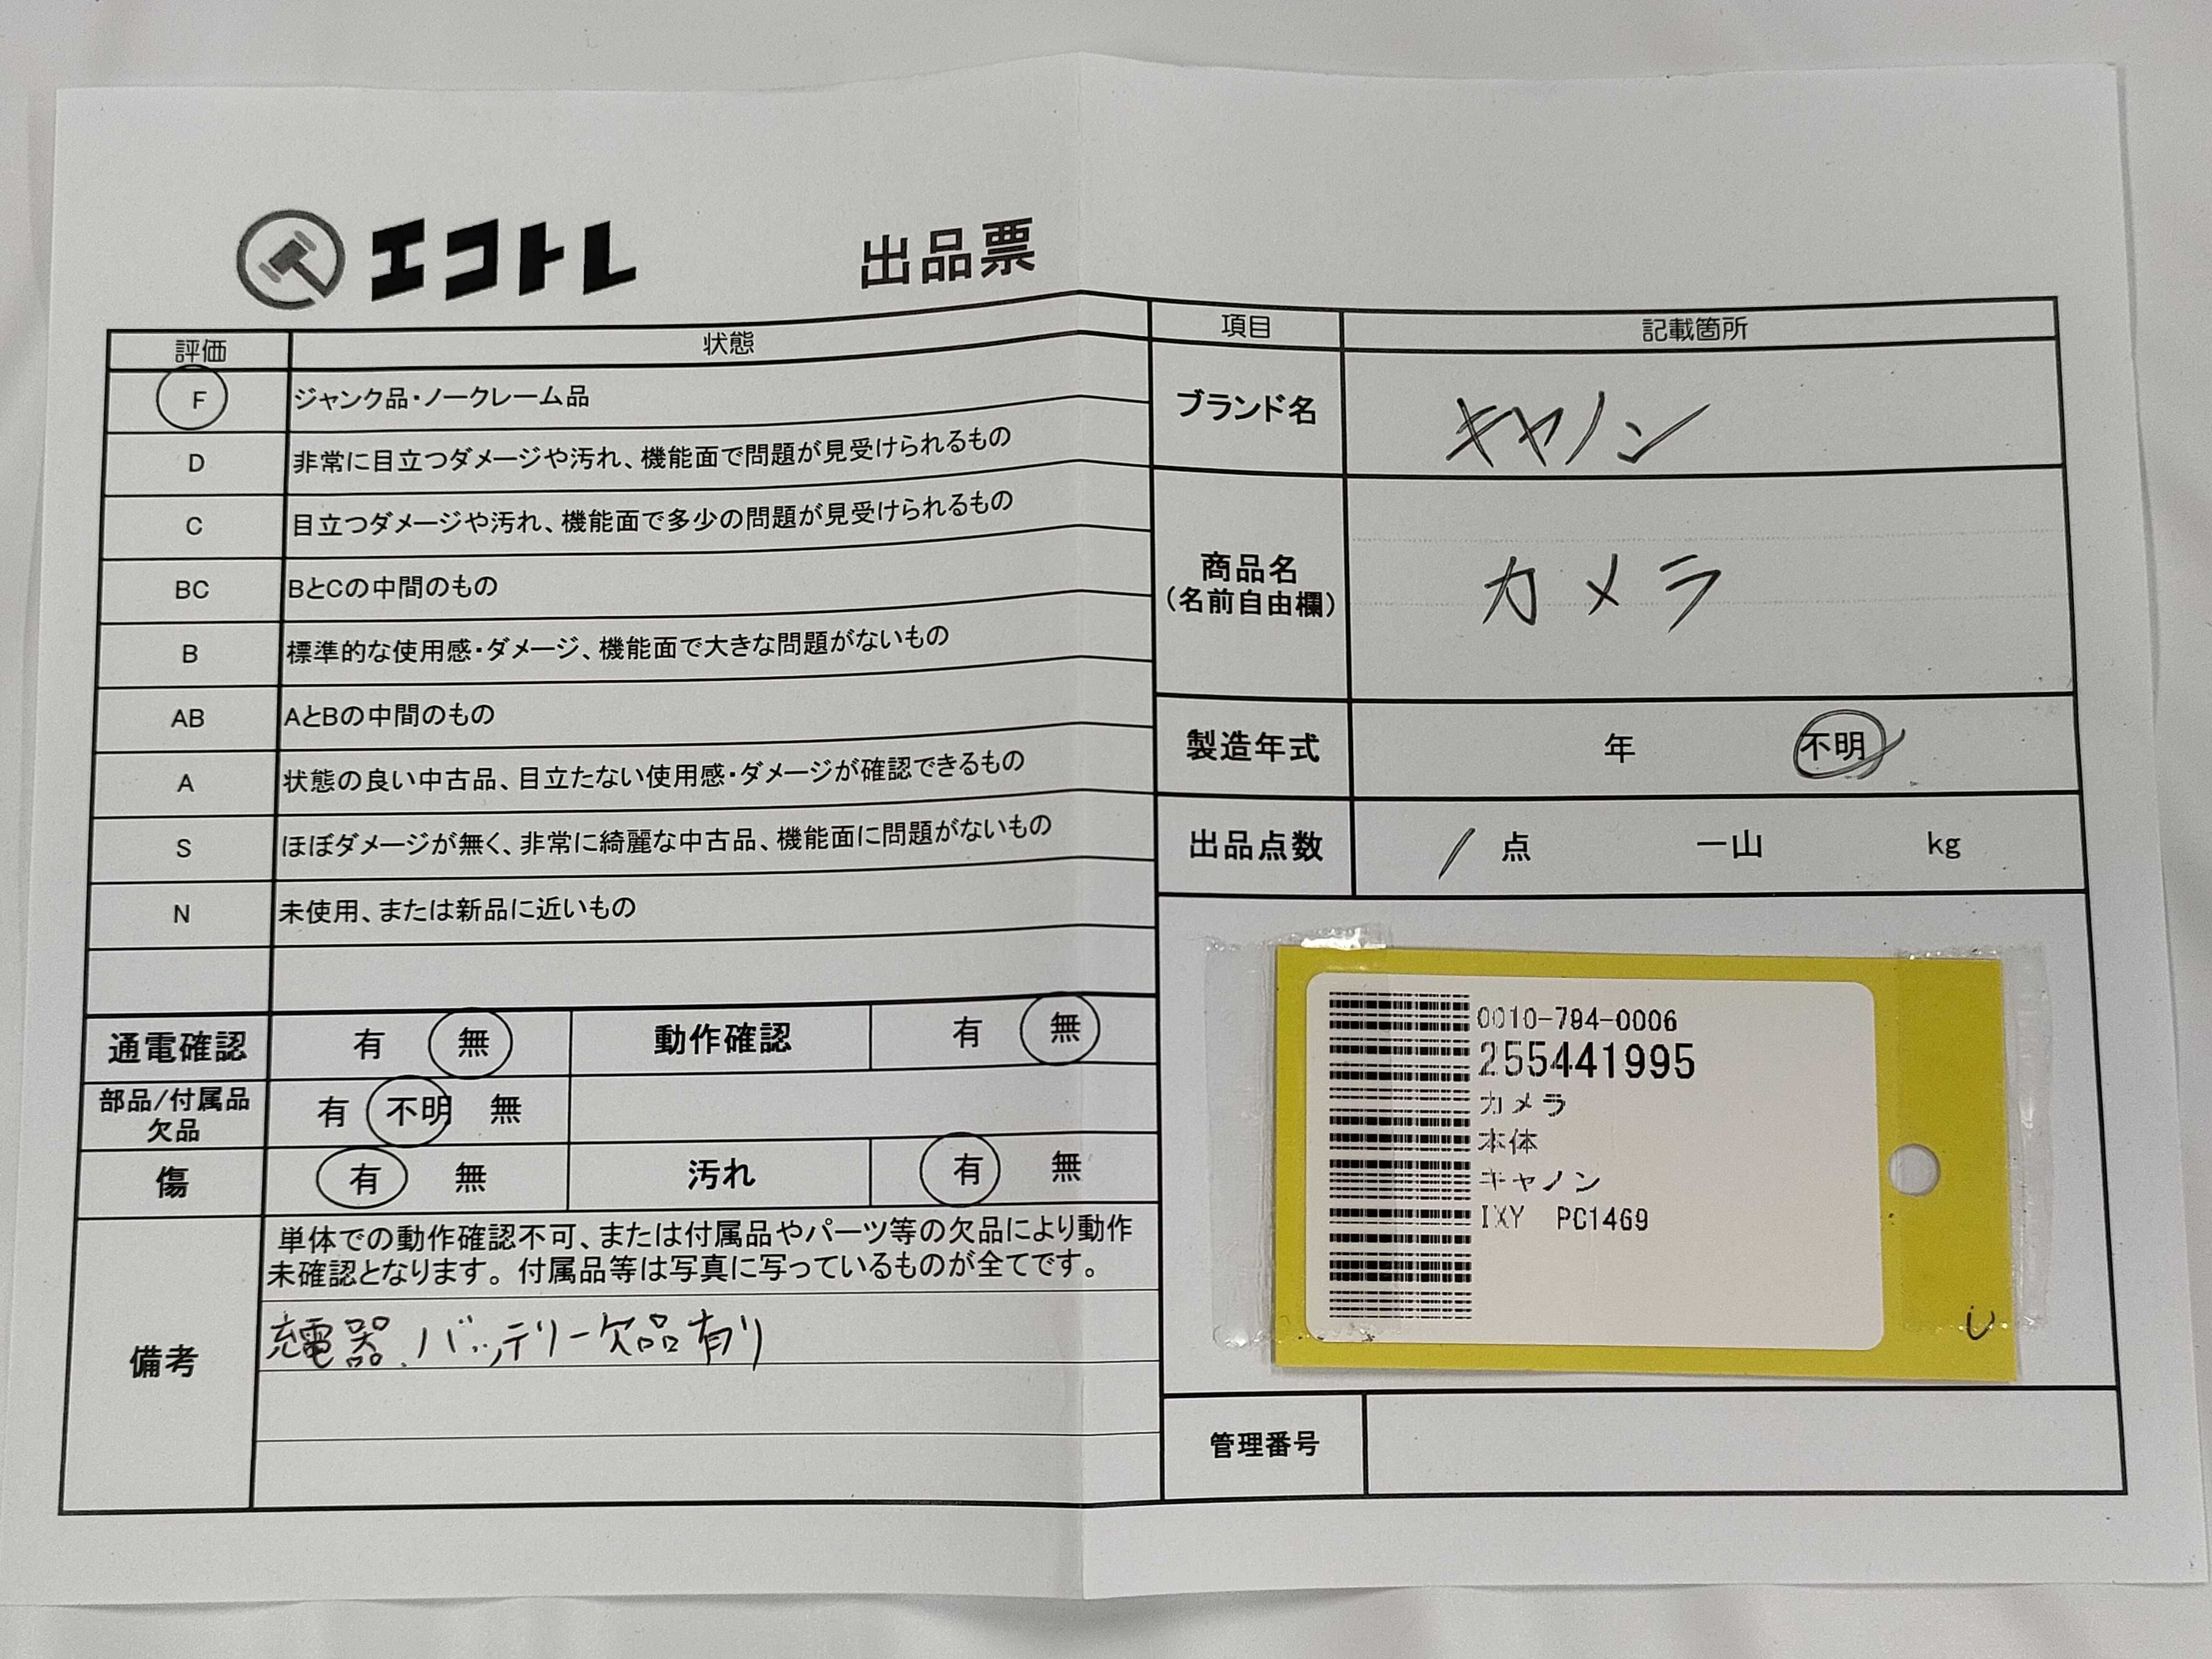 エコトレ 出品票
評価 状態
F ジャンク品・ノークレーム品
D 非常に目立つダメージや汚れ、機能面で問題が見受けられるもの
C 目立つダメージや汚れ、機能面で多少の問題が見受けられるもの
BC BとCの中間のもの
B 標準的な使用感・ダメージ、機能面で大きな問題がないもの
AB AとBの中間のもの
A 状態の良い中古品、目立たない使用感・ダメージが確認できるもの
S ほぼダメージが無く、非常に綺麗な中古品、機能面に問題がないもの
N 未使用、または新品に近いもの
通電確認 有 無 動作確認 有 無
部品/付属品
欠品
有 不明 無
傷 有 無 汚れ 有 無
備考
単体での動作確認不可、または付属品やパーツ等の欠品により動作
未確認となります。付属品等は写真に写っているものが全てです。
充電器、バッテリー欠品有り
項目 記載箇所
ブランド名 キヤノン
商品名
(名前自由欄)
カメラ
製造年式 年 不明
出品点数 1 点 一山 kg
0010-794-0006
255441995
カメラ
本体
キャノン
IXY PC1469
管理番号